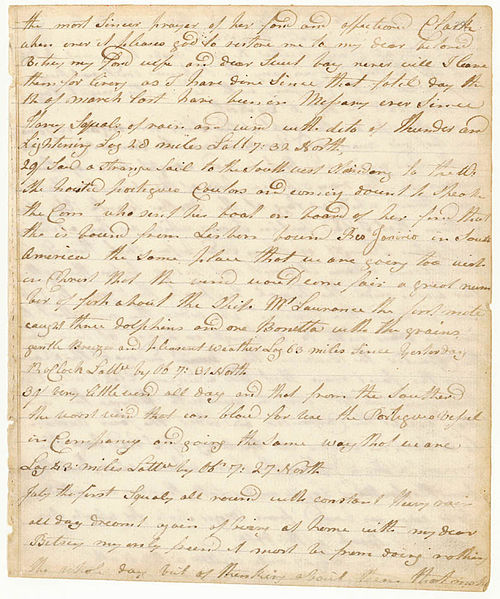 the most sincer prayer of her fond and affectioned Clark
when ever it pleases god to restore me to my dear beloved
Betsey my fond wife and dear Sweet boy never will I leave
them for living as I have done since that fatal day the
12 of march last have been in Mesary ever since
heavy Squaly of rain and wind with ditto of thunder and
Lightening Log 28 miles Latt 7: 32 North
29 Saw a strange sail to the South west Standing to the W
She hoisted portegueo Coulors and coming down to Speake
the Com who sent his boat on board of her find that
she is bound from Lisbon bound Reo Janiro in South
America the same place that we are going too wish
in Christ that the wind would come fair a great num
ber of fish about the Ship Mr Laurance the first mate
caught three dolphins and one Bonetta with the grains
gentle Breeze and pleasent weather Log 63 miles Since yesterday
Latt by Ob 7: 31 North
30 very little wind all day and that from the Southerd
the worst wind that can blow for us the Portegueo Vessel
in Company and going the same way that we are
Log 23 miles Latt by Ob 7: 27 North
July the first Squaly all round with constant heavy rain
all day dreamt again of being at home with my dear
Betsey my only freind it must be from doing nothing
the whole day but of thinking about them that